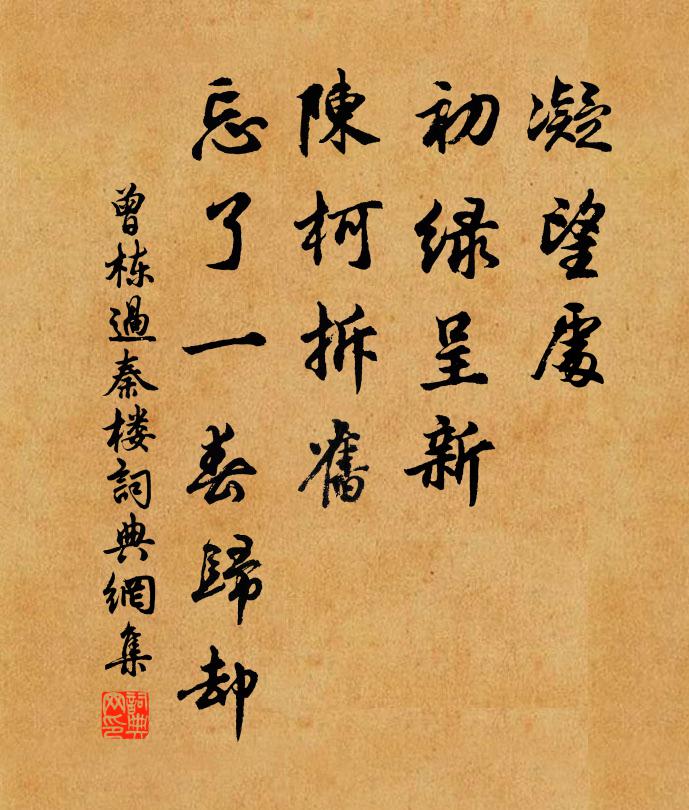 凝望處
初緑呈新
陳柯拆舊
忘了一春歸却
曾栋過秦楼詞典網集
詞典网印